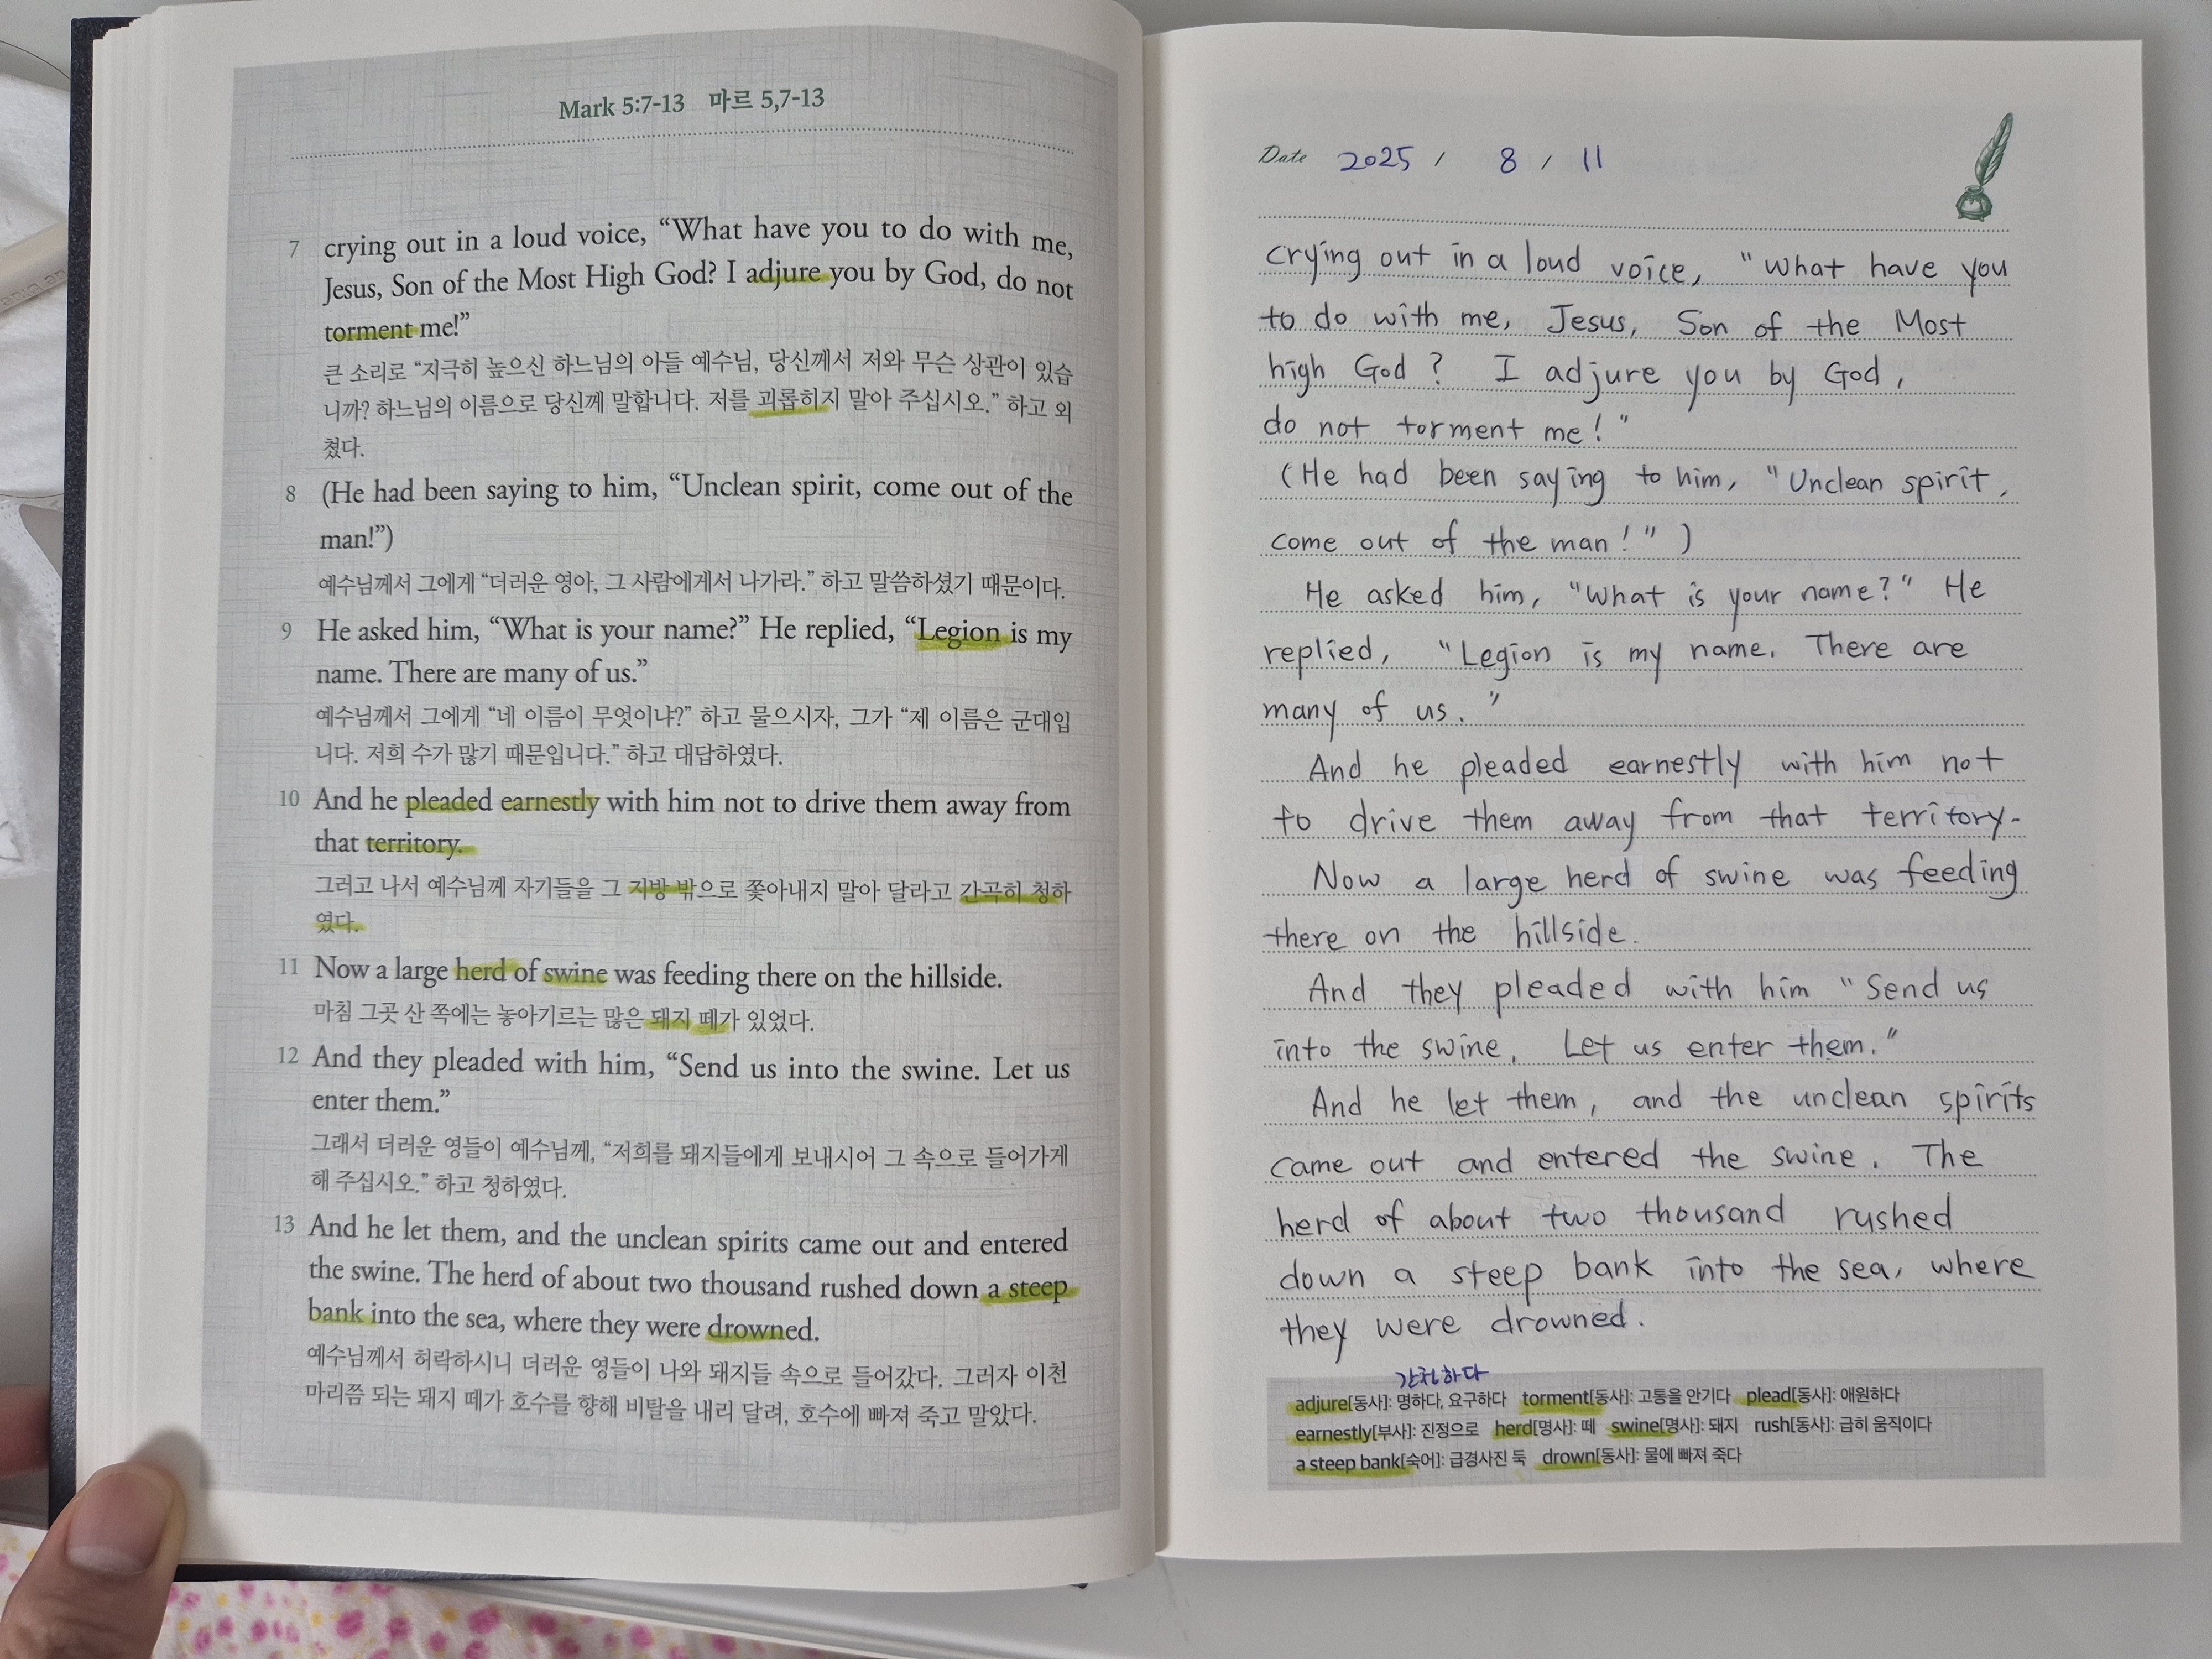 Mark 5:7-13 마르 5,7-13
7 crying out in a loud voice, “What have you to do with me,
Jesus, Son of the Most High God? I adjure you by God, do not
torment me!”
큰 소리로 “지극히 높으신 하느님의 아들 예수님, 당신께서 저와 무슨 상관이 있습
니까? 하느님의 이름으로 당신께 말합니다. 저를 괴롭히지 말아 주십시오.” 하고 외
쳤다.
8 (He had been saying to him, “Unclean spirit, come out of the
man!”)
예수님께서 그에게 “더러운 영아, 그 사람에게서 나가라.” 하고 말씀하셨기 때문이다.
9 He asked him, “What is your name?” He replied, “Legion is my
name. There are many of us.”
예수님께서 그에게 “네 이름이 무엇이냐?” 하고 물으시자, 그가 “제 이름은 군대입
니다. 저희 수가 많기 때문입니다.” 하고 대답하였다.
10 And he pleaded earnestly with him not to drive them away from
that territory.
그러고 나서 예수님께 자기들을 그 지방 밖으로 쫓아내지 말아 달라고 간곡히 청하
였다.
11 Now a large herd of swine was feeding there on the hillside.
마침 그곳 산 쪽에는 놓아기르는 많은 돼지 떼가 있었다.
12 And they pleaded with him, “Send us into the swine. Let us
enter them.”
그래서 더러운 영들이 예수님께, “저희를 돼지들에게 보내시어 그 속으로 들어가게
해 주십시오.” 하고 청하였다.
13 And he let them, and the unclean spirits came out and entered
the swine. The herd of about two thousand rushed down a steep
bank into the sea, where they were drowned.
예수님께서 허락하시니 더러운 영들이 나와 돼지들 속으로 들어갔다. 그러자 이천
마리쯤 되는 돼지 떼가 호수를 향해 비탈을 내리 달려, 호수에 빠져 죽고 말았다.
Date 2025 / 8 / 11
crying out in a loud voice, "What have you
to do with me, Jesus, Son of the Most
high God? I adjure you by God,
do not torment me!"
(He had been saying to him, "Unclean spirit,
come out of the man!")
He asked him, "What is your name?" He
replied, "Legion is my name. There are
many of us."
And he pleaded earnestly with him not
to drive them away from that territory.
Now a large herd of swine was feeding
there on the hillside.
And they pleaded with him "Send us
into the swine. Let us enter them."
And he let them, and the unclean spirits
came out and entered the swine. The
herd of about two thousand rushed
down a steep bank into the sea, where
they were drowned.
간청하다
adjure[동사]: 명하다, 요구하다 torment[동사]: 고통을 안기다 plead[동사]: 애원하다
earnestly[부사]: 진정으로 herd[명사]: 떼 swine[명사]: 돼지 rush[동사]: 급히 움직이다
a steep bank[숙어]: 급경사진 둑 drown[동사]: 물에 빠져 죽다